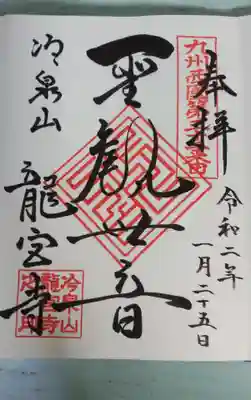 奉拝
令和二年
一月二十五日
九州西国第三十二番
聖観世音
冷泉山
龍宮寺
冷泉山
龍宮寺